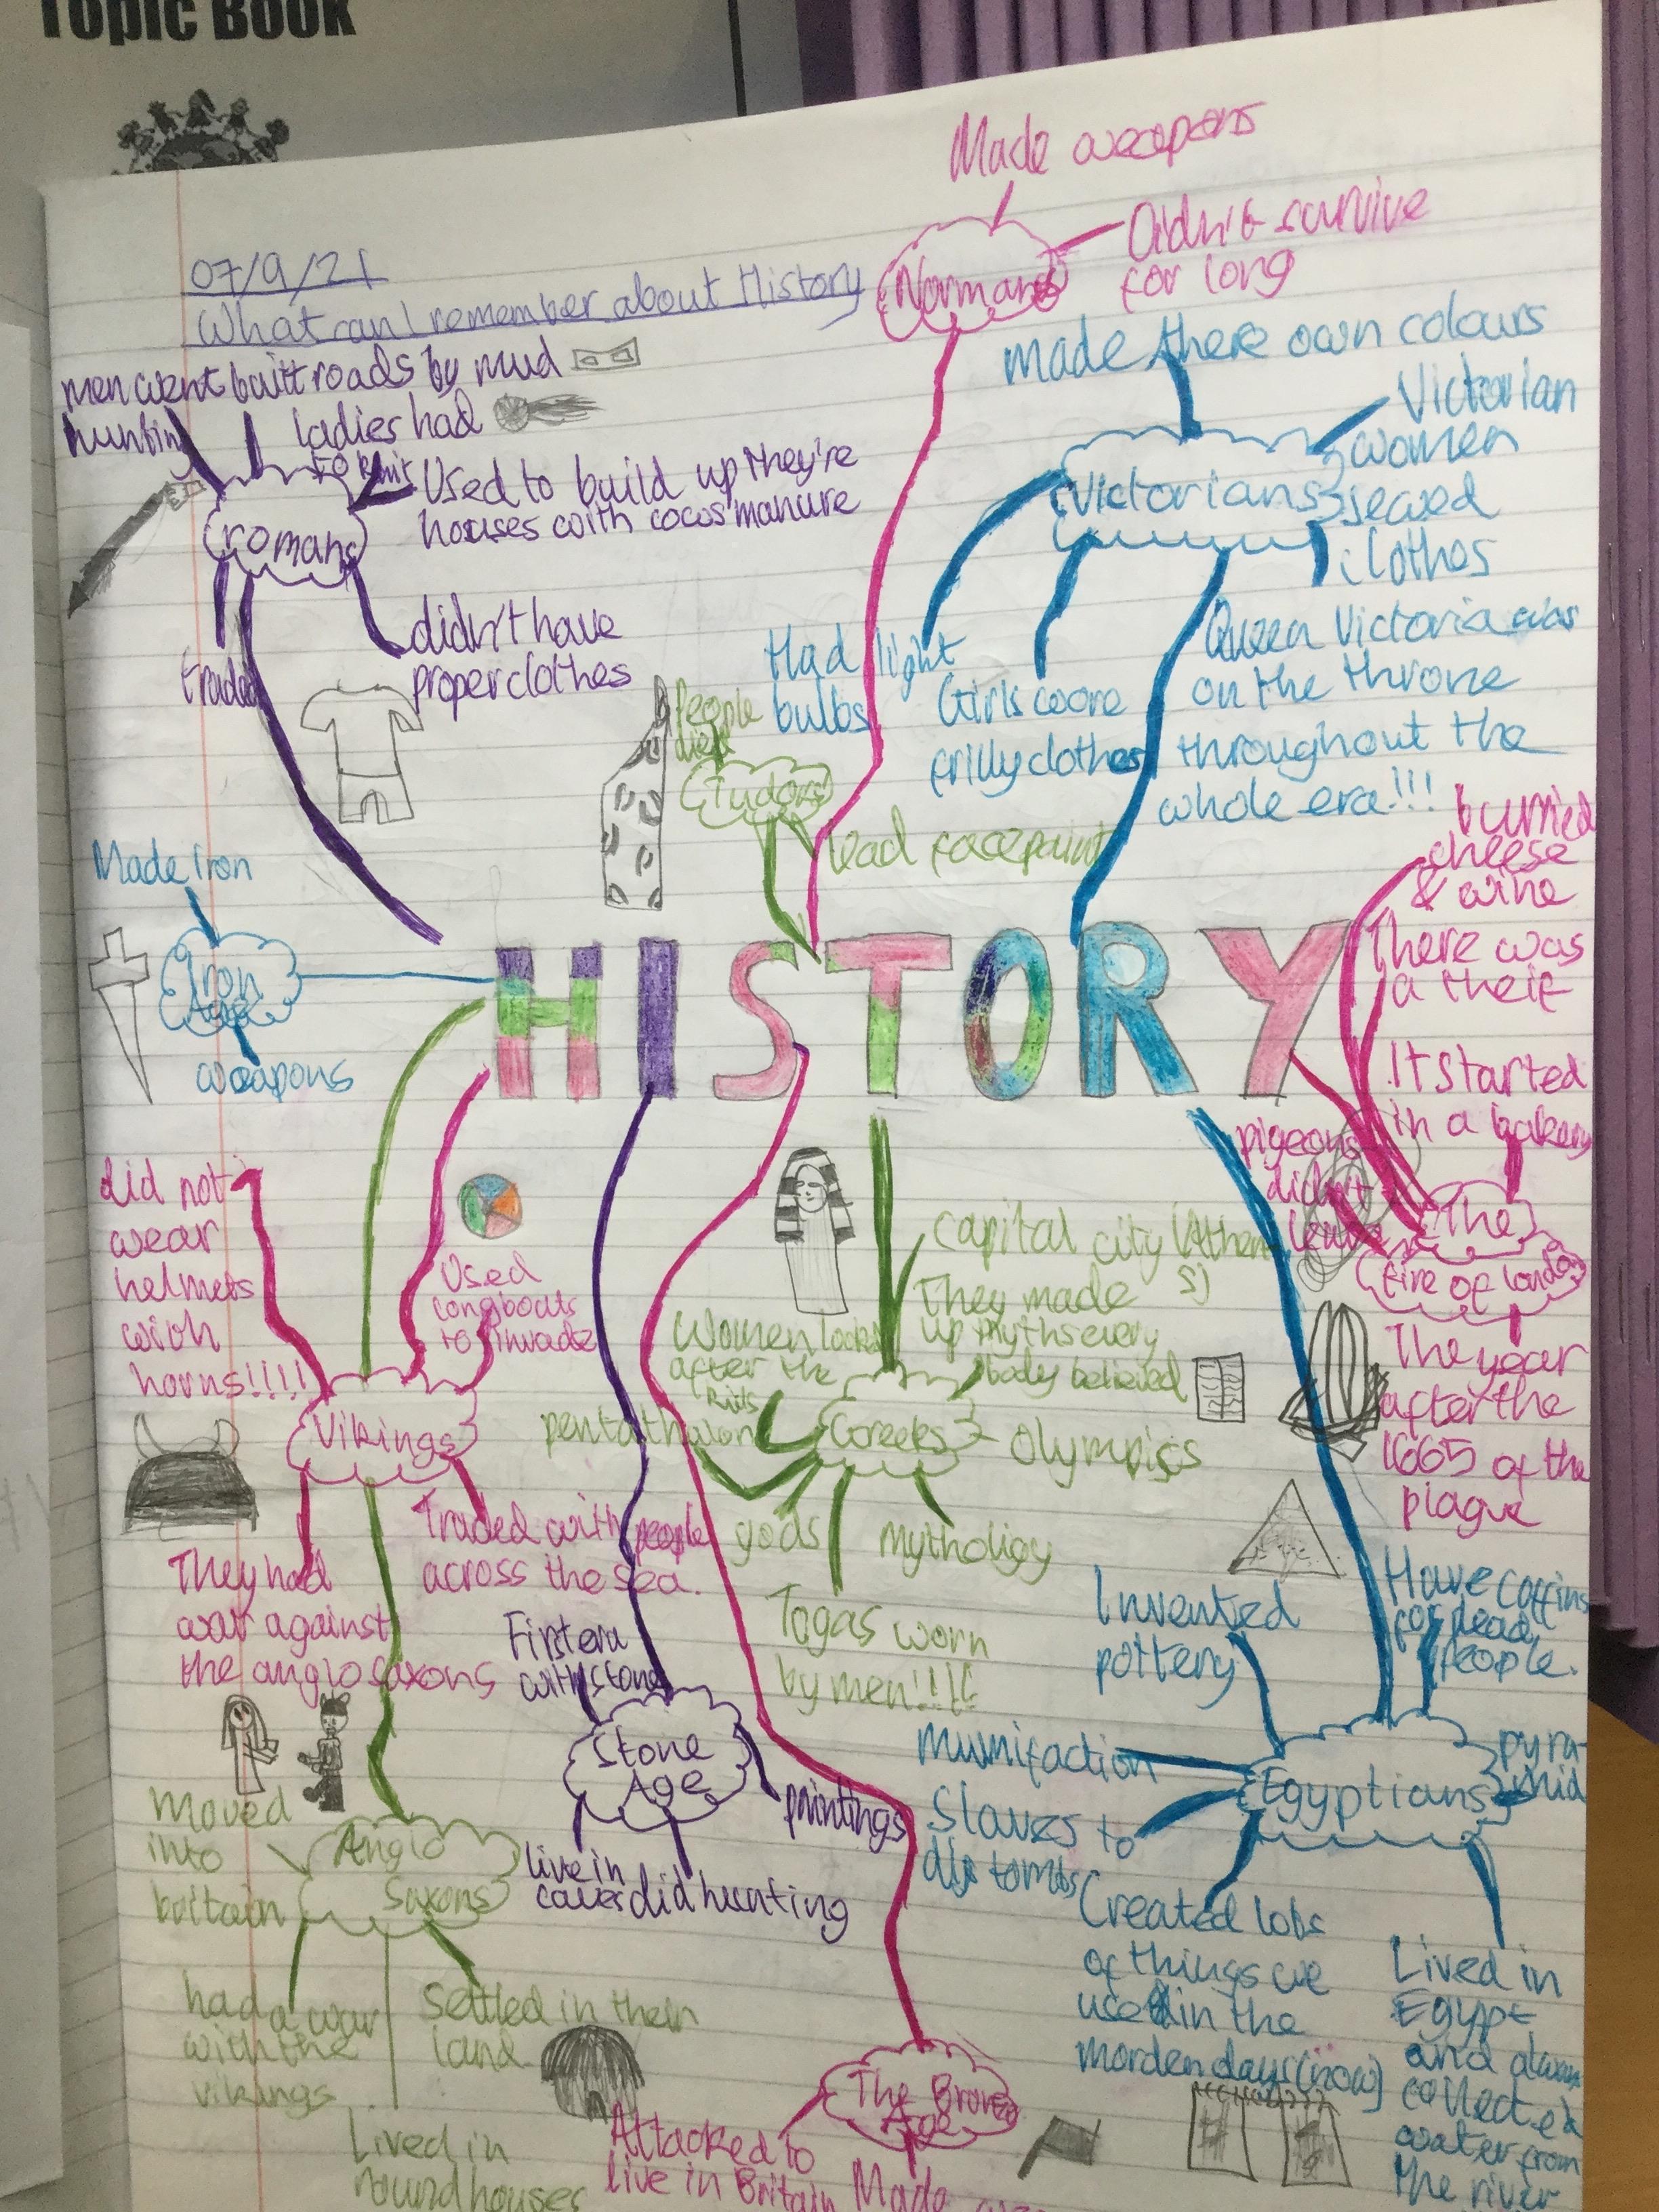 Topic Book
07/9/21
What can I remember about History
Made weapons
Normans
Didn't survive
for long
men went
hunting
built roads by mud
ladies had
to knit
Used to build up they're
houses with cows manure
romans
traded
didn't have
proper clothes
made there own colours
Victorians
Victorian
women
sewed
clothes
Had light
bulbs
Girls wore
frilly clothes
Queen Victoria was
on the throne
throughout the
whole era!!!
People
died
Tudors
lead facepaint
Made iron
Iron
Age
weapons
HISTORY
burried
cheese
& wine
There was
a theif
It started
in a bakery
pigeons
didn't
leave
The
fire of london
The year
after the
1665 of the
plague
did not
wear
helmets
with
horns!!!!
Used
longboats
to invade
Vikings
They had
war against
the anglo saxons
Traded with people
across the sea.
capital city (Athen
s)
They made
up myths every
body believed
Women looked
after the
pentathalon
Greeks
Olympics
gods
Mythology
Togas worn
by men!!!!
First era
with stone
Stone
Age
paintings
live in
caves
did hunting
Invented
pottery
Have coffins
for dead
people.
Mumifaction
Egyptians
pyra-
mid
Slaves to
tombs
Created lots
of things we
used in the
morden days (now)
Lived in
Egypt
and always
collected
water from
the river
Moved
into
britain
Anglo
Saxons
had a war
with the
vikings
Settled in their
land
Lived in
roundhouses
The Bronze
Age
Attacked to
live in Britain
Made